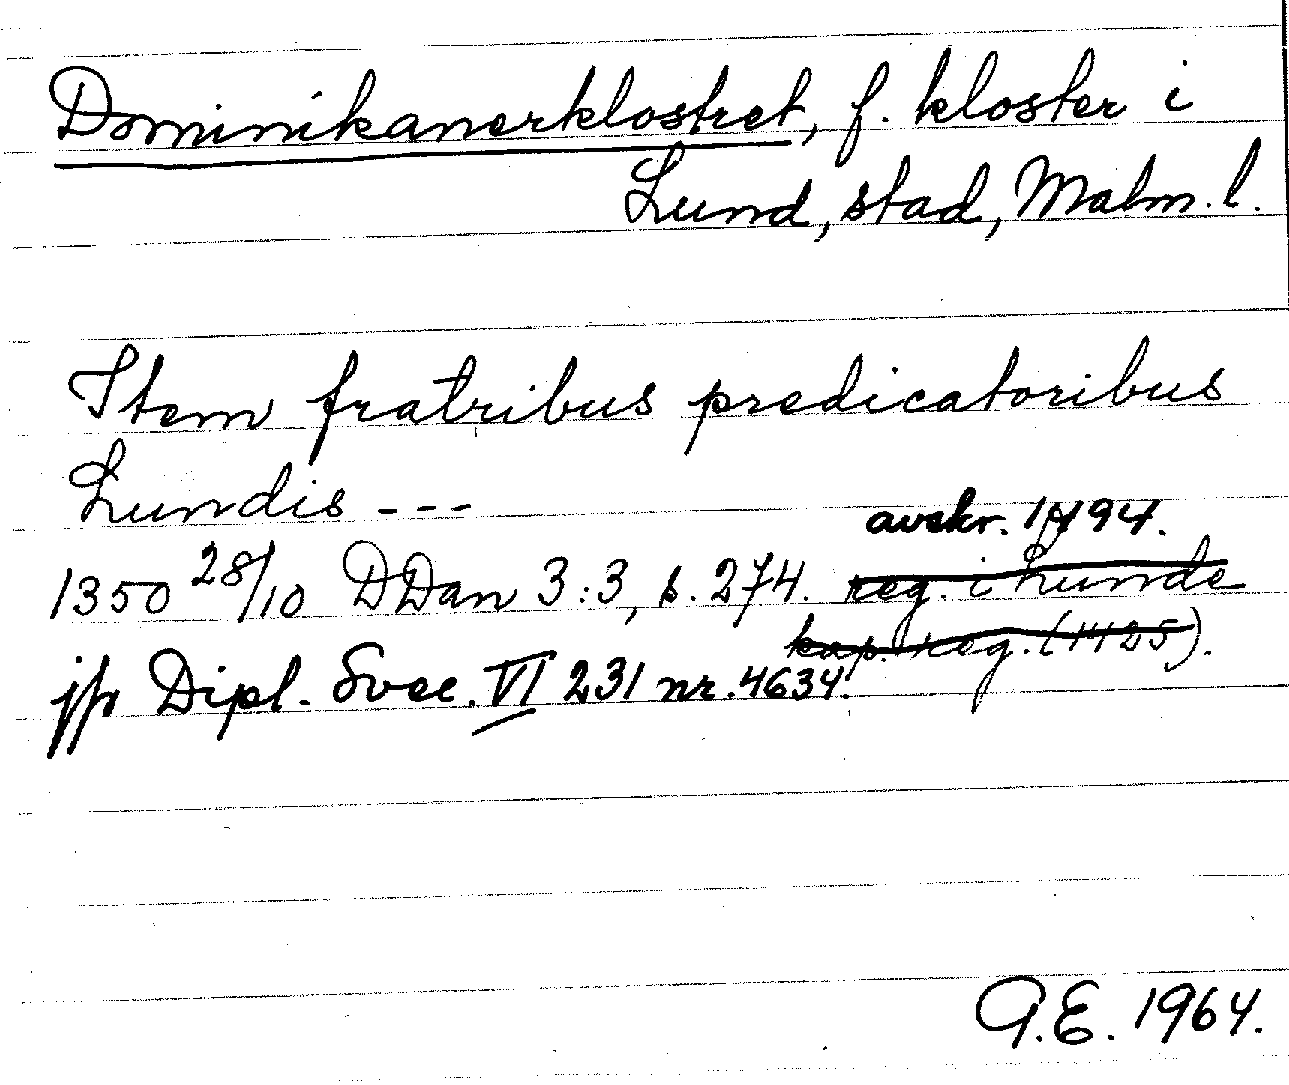 Dominikanerklostret, f. kloster i
Lund, stad, Malm. l.
Item fratribus predicatoribus
Lundis ---
avskr. 1494.
1350 28/10 DDan 3:3, s. 274. reg. i Lunde
kap. reg. (1425).
jfr Dipl. Svec. VI 231 nr. 4634.
G.E. 1964.